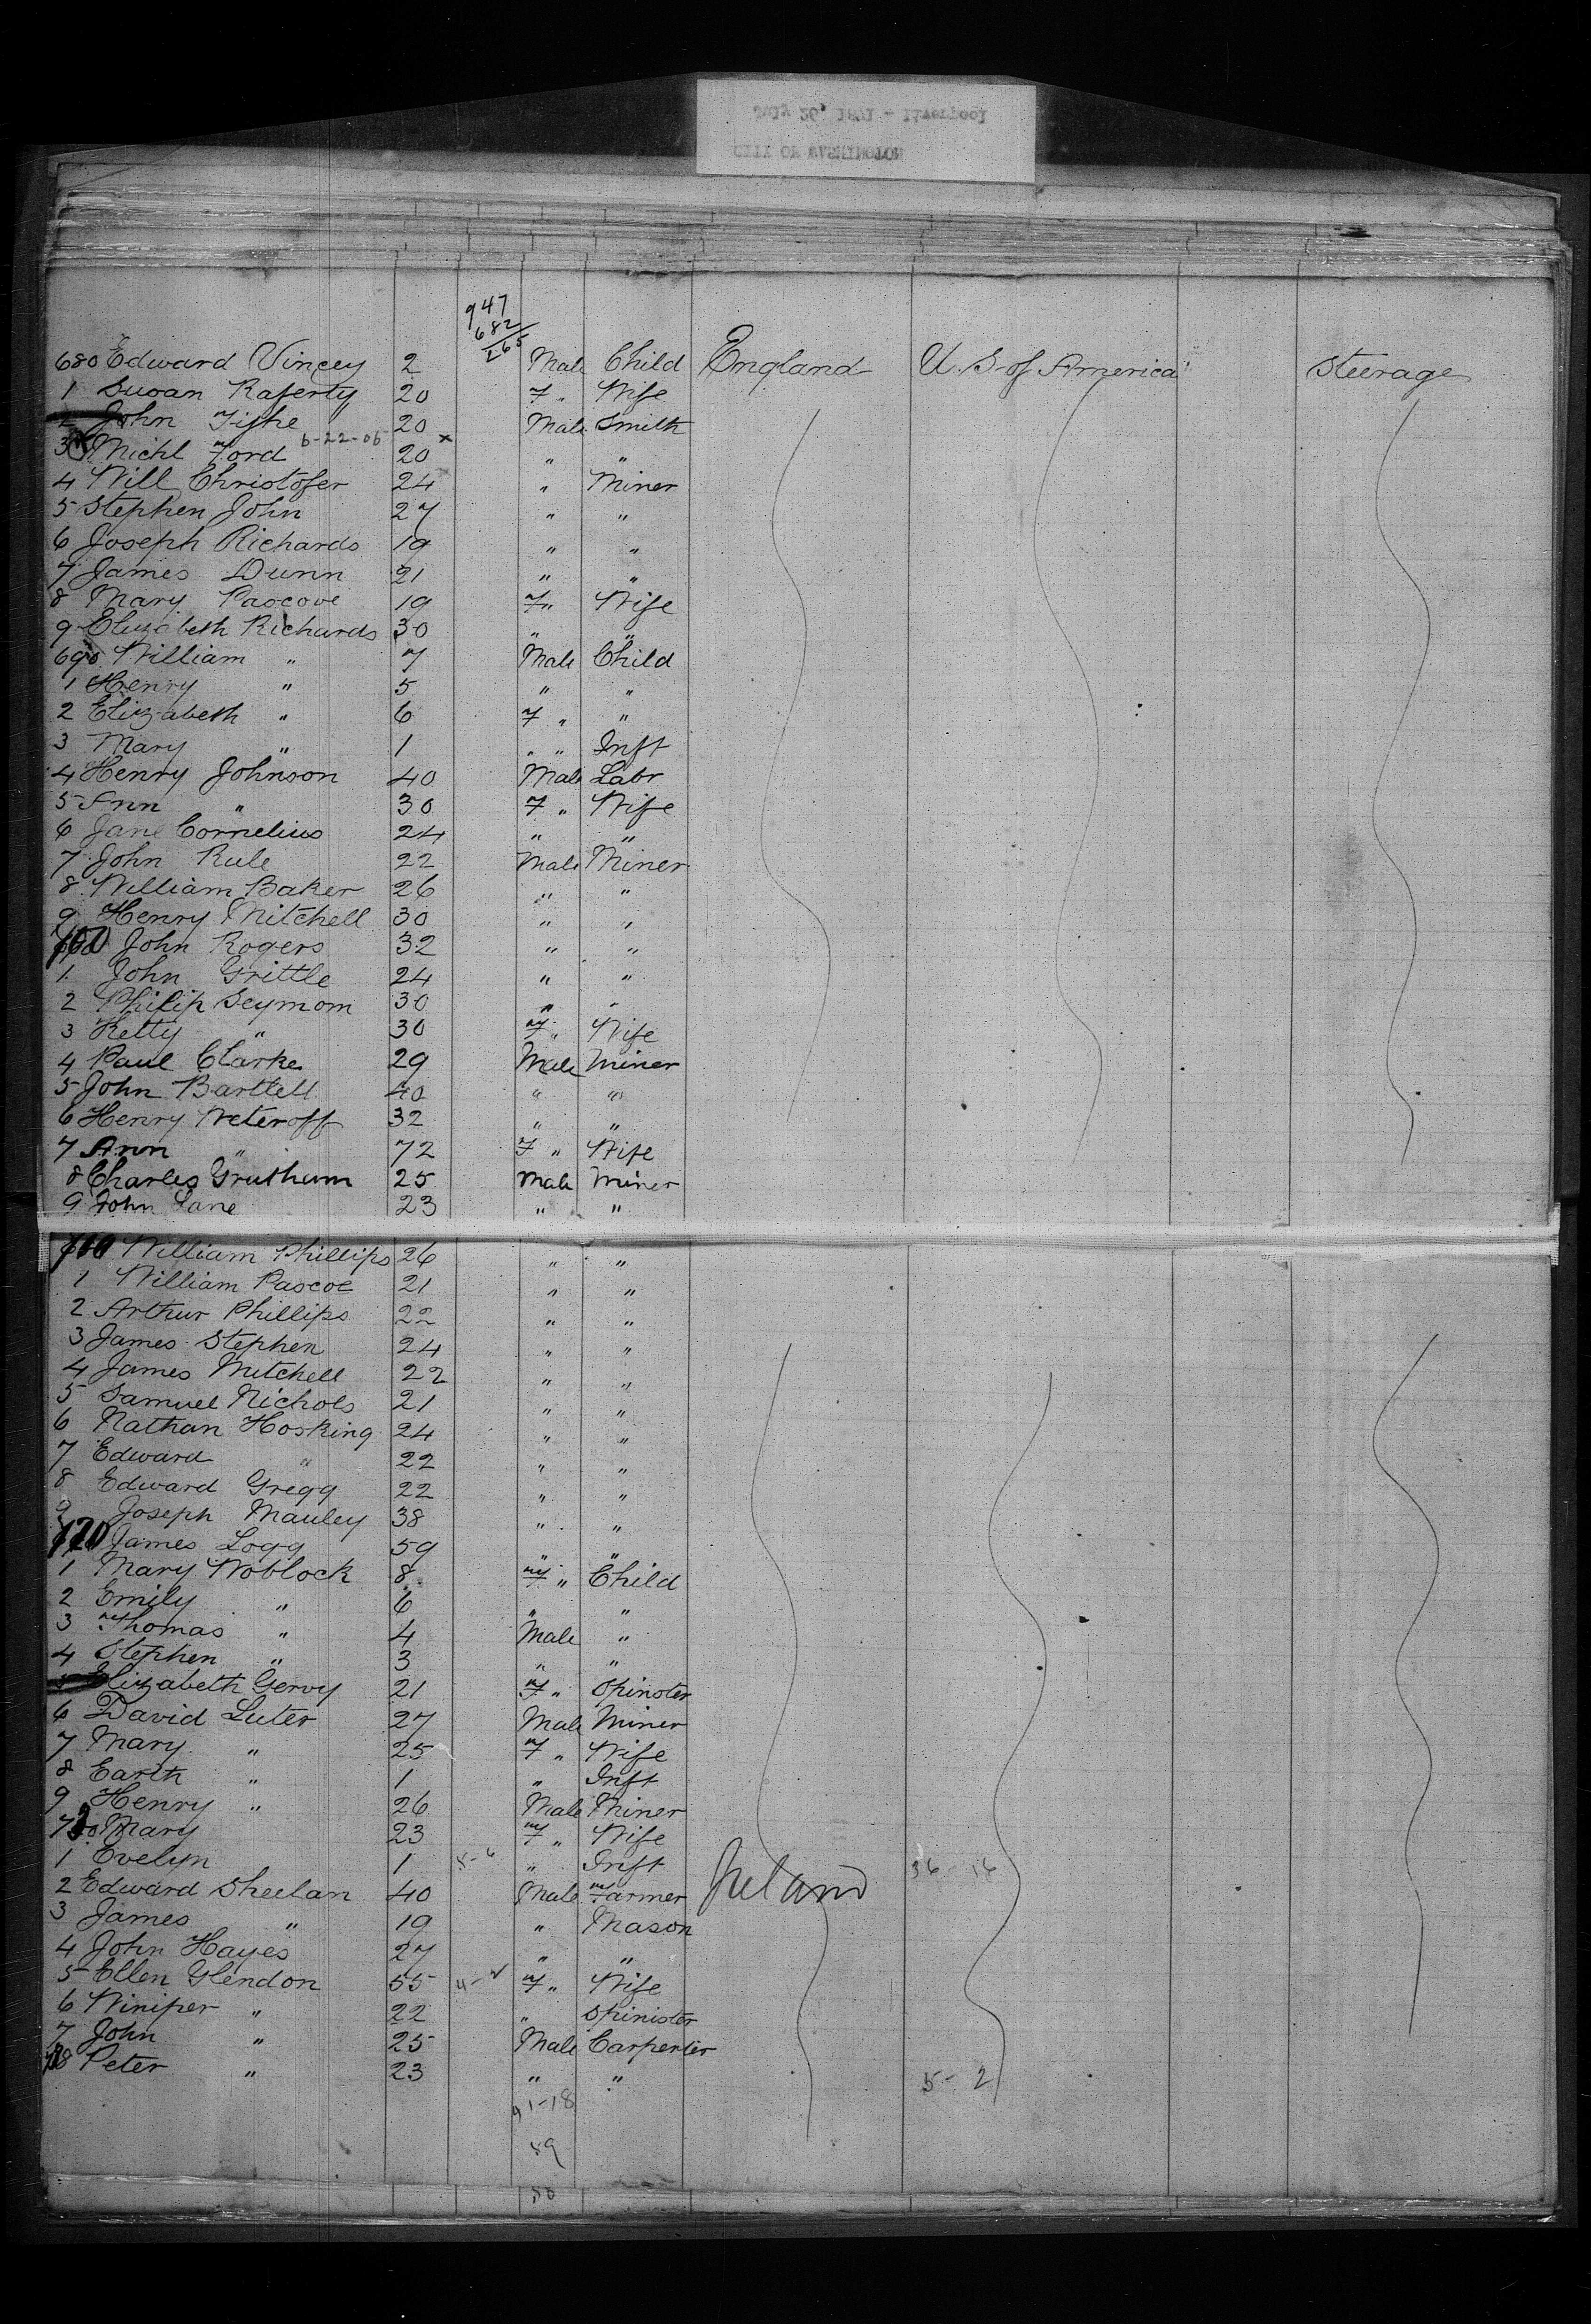 July 26, 1871 - Liverpool
CITY OF WASHINGTON
947
682
265
680 Edward Vincey 2 Male Child England U. S. of America Steerage
1 Susan Raferty 20 F " Wife
2 John Tighe 20 Male Smith
3 Michl Ford 6-22-05 20 x " "
4 Will Christofer 24 " Miner
5 Stephen John 27 " "
6 Joseph Richards 19 " "
7 James Dunn 21 " "
8 Mary Pascove 19 F " Wife
9 Elizabeth Richards 30 " "
690 William " 7 Male Child
1 Henry " 5 " "
2 Elizabeth " 6 F " "
3 Mary " 1 " " Inft
4 Henry Johnson 40 Male Labr
5 Ann " 30 F " Wife
6 Jane Cornelius 24 " "
7 John Rule 22 Male Miner
8 William Baker 26 " "
9 Henry Mitchell 30 " "
700 John Rogers 32 " "
1 John Grittle 24 " "
2 Philip Seymom 30 " "
3 Ketty " 30 F " Wife
4 Paul Clarke 29 Male Miner
5 John Bartlett 40 " "
6 Henry Weteroff 32 " "
7 Ann " 72 F " Wife
8 Charles Gruthum 25 Male Miner
9 John Lane 23 " "
710 William Phillips 26 " "
1 William Pascoe 21 " "
2 Arthur Phillips 22 " "
3 James Stephen 24 " "
4 James Mitchell 22 " "
5 Samuel Nichols 21 " "
6 Nathan Hosking 24 " "
7 Edward " 22 " "
8 Edward Gregg 22 " "
9 Joseph Mauley 38 " "
720 James Logg 59 " "
1 Mary Woblock 8 F " Child
2 Emily " 6 " "
3 Thomas " 4 Male "
4 Stephen " 3 " "
5 Elizabeth Gervy 21 F " Spinster
6 David Luter 27 Male Miner
7 Mary " 25 F " Wife
8 Earth " 1 " Inft
9 Henry " 26 Male Miner
730 Mary 23 F " Wife
1 Evelyn 1 " Inft 36-16
2 Edward Sheelan 40 Male Farmer Ireland
3 James " 19 " Mason
4 John Hayes 27 " "
5 Ellen Glendon 55 F " Wife
6 Winifer " 22 " Spinister
7 John " 25 Male Carpenter
738 Peter " 23 " " 5-2
91-18
59
50